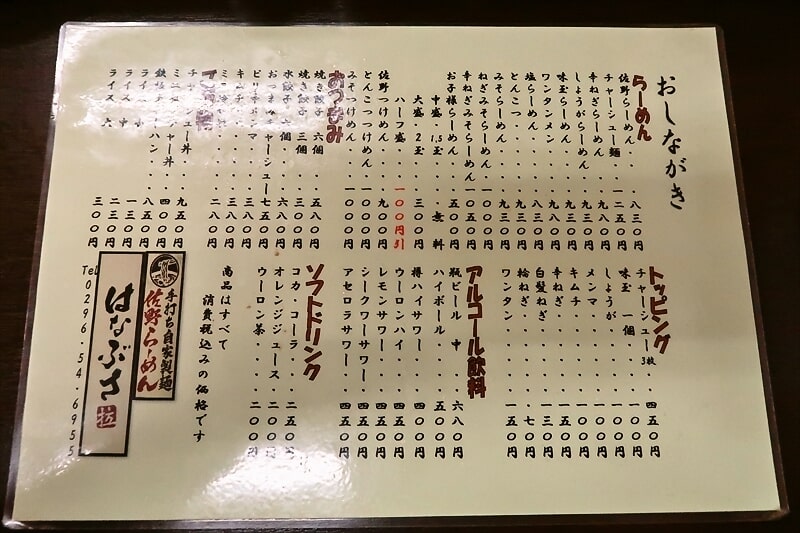 おしながき
らーめん
佐野らーめん・・八三〇円
チャーシュー麺・一二五〇円
辛ねぎらーめん・・九八〇円
しょうがらーめん・
味玉らーめん・・九三〇円
ワンタンメン・・・九八〇円
塩らーめん・・・八三〇円
とんこつ・・・・九三〇円
みそらーめん・・・九三〇円
ねぎみそらーめん・一〇五〇円
辛ねぎみそらーめん 一〇五〇円
お子様らーめん・・五〇〇円
中盛・1.5玉・・無料
大盛・2玉・・三〇〇円
ハーフ盛・・・一〇〇円引
佐野つけめん・・・九〇〇円
とんこつつけめん・一〇〇〇円
みそつけめん・・一〇〇〇円
おつまみ
焼き餃子 六個・・五八〇円
焼き餃子 三個・・三〇〇円
水餃子 六個・・六八〇円
おつまみチャーシュー 七五〇円
キムチ・・・三八〇円
二八〇円
チャー丼・・九五〇円
ミニチャー丼・・四〇〇円
チャーハン・・八五〇円
ライス 中・・一三〇円
ライス 大・・二三〇円
三〇〇円
トッピング
チャーシュー3枚・・四五〇円
味玉 一個・・・一〇〇円
しょうが・・・・一〇〇円
メンマ・・・・・一〇〇円
キムチ・・・・
辛ねぎ・・・・・一五〇円
白髪ねぎ・・・・一三〇円
輪ねぎ・・・・・七〇円
ワンタン・・・・一五〇円
アルコール飲料
瓶ビール 中・・六八〇円
ハイボール・・・五〇〇円
樽ハイサワー・・四〇〇円
ウーロンハイ・・四五〇円
レモンサワー・・四五〇円
シークワーサワー・四五〇円
アセロラサワー・・四五〇円
ソフトドリンク
コカ・コーラ・・二五〇円
オレンジジュース・二〇〇円
ウーロン茶・・・二〇〇円
商品はすべて
消費税込みの価格です
手打ち自家製麺
佐野らーめん
はなぶさ
Tel 0296-54-6955